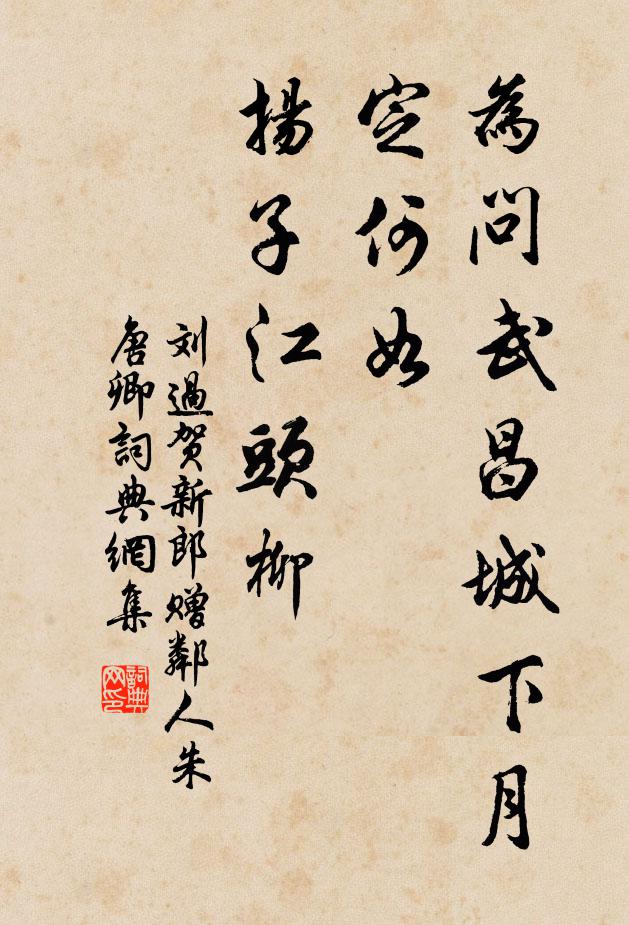 為問武昌城下月
定何如
揚子江頭柳
刘過賀新郎贈鄰人朱
唐卿詞典網集
詞典网印